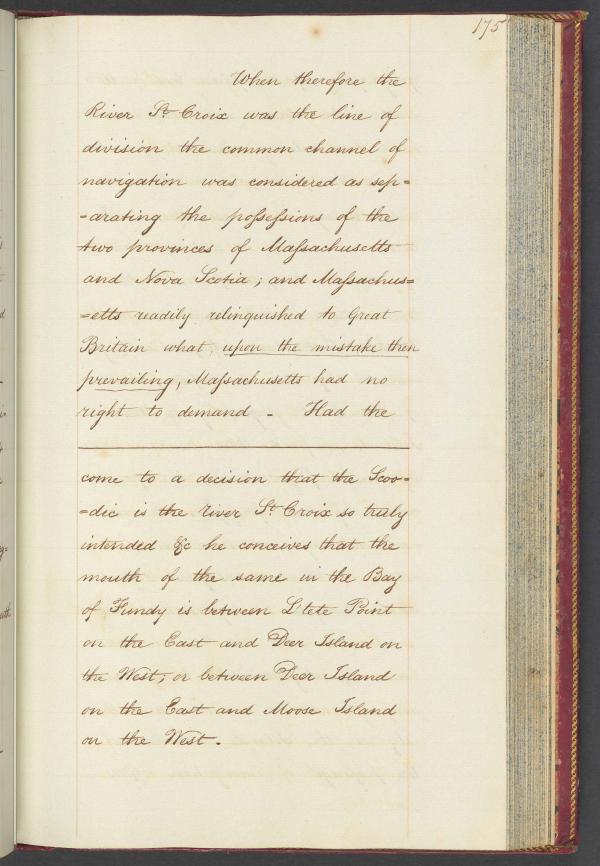 175
When therefore the
River St. Croix was the line of
division the common channel of
navigation was considered as sep=
=arating the poſseſsions of the
two provinces of Maſsachusetts
and Nova Scotia; and Maſsachus=
=etts readily relinquished to Great
Britain what, upon the mistake then
prevailing, Maſsachusetts had no
right to demand - Had the
come to a decision that the Scoo=
=dic is the river St. Croix so truly
intended &c he conceives that the
mouth of the same in the Bay
of Fundy is between L'tete Point
on the East and Deer Island on
the West; or between Deer Island
on the East and Moose Island
on the West.